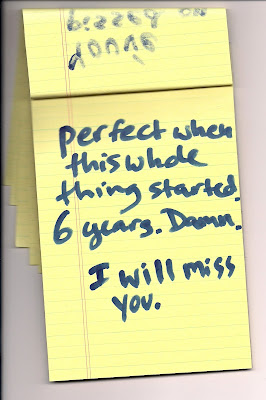 perfect when
this whole
thing started.
6 years. Damn.
I will miss
you.